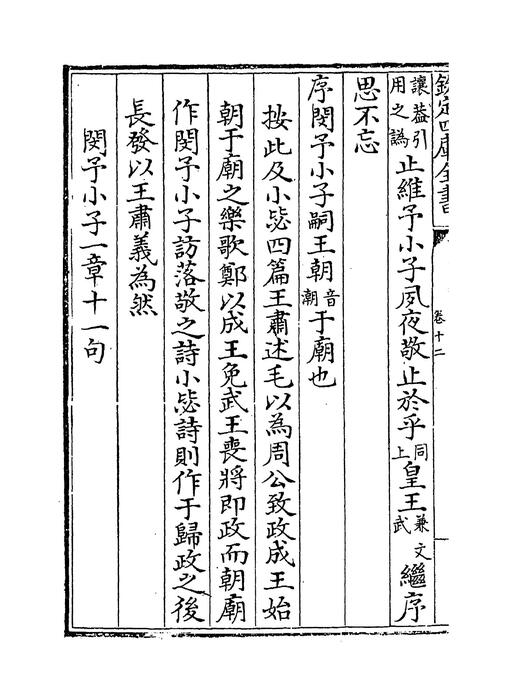 欽定四庫全書
卷十二
讓葢引用之譌止維予小子夙夜敬止於乎同上皇王兼文武繼序
思不忘
序閔予小子嗣王朝音潮于廟也
按此及小毖四篇王肅述毛以為周公致政成王始
朝于廟之樂歌鄭以成王免武王喪將即政而朝廟
作閔予小子訪落敬之詩小毖詩則作于歸政之後
長發以王肅義為然
閔予小子一章十一句